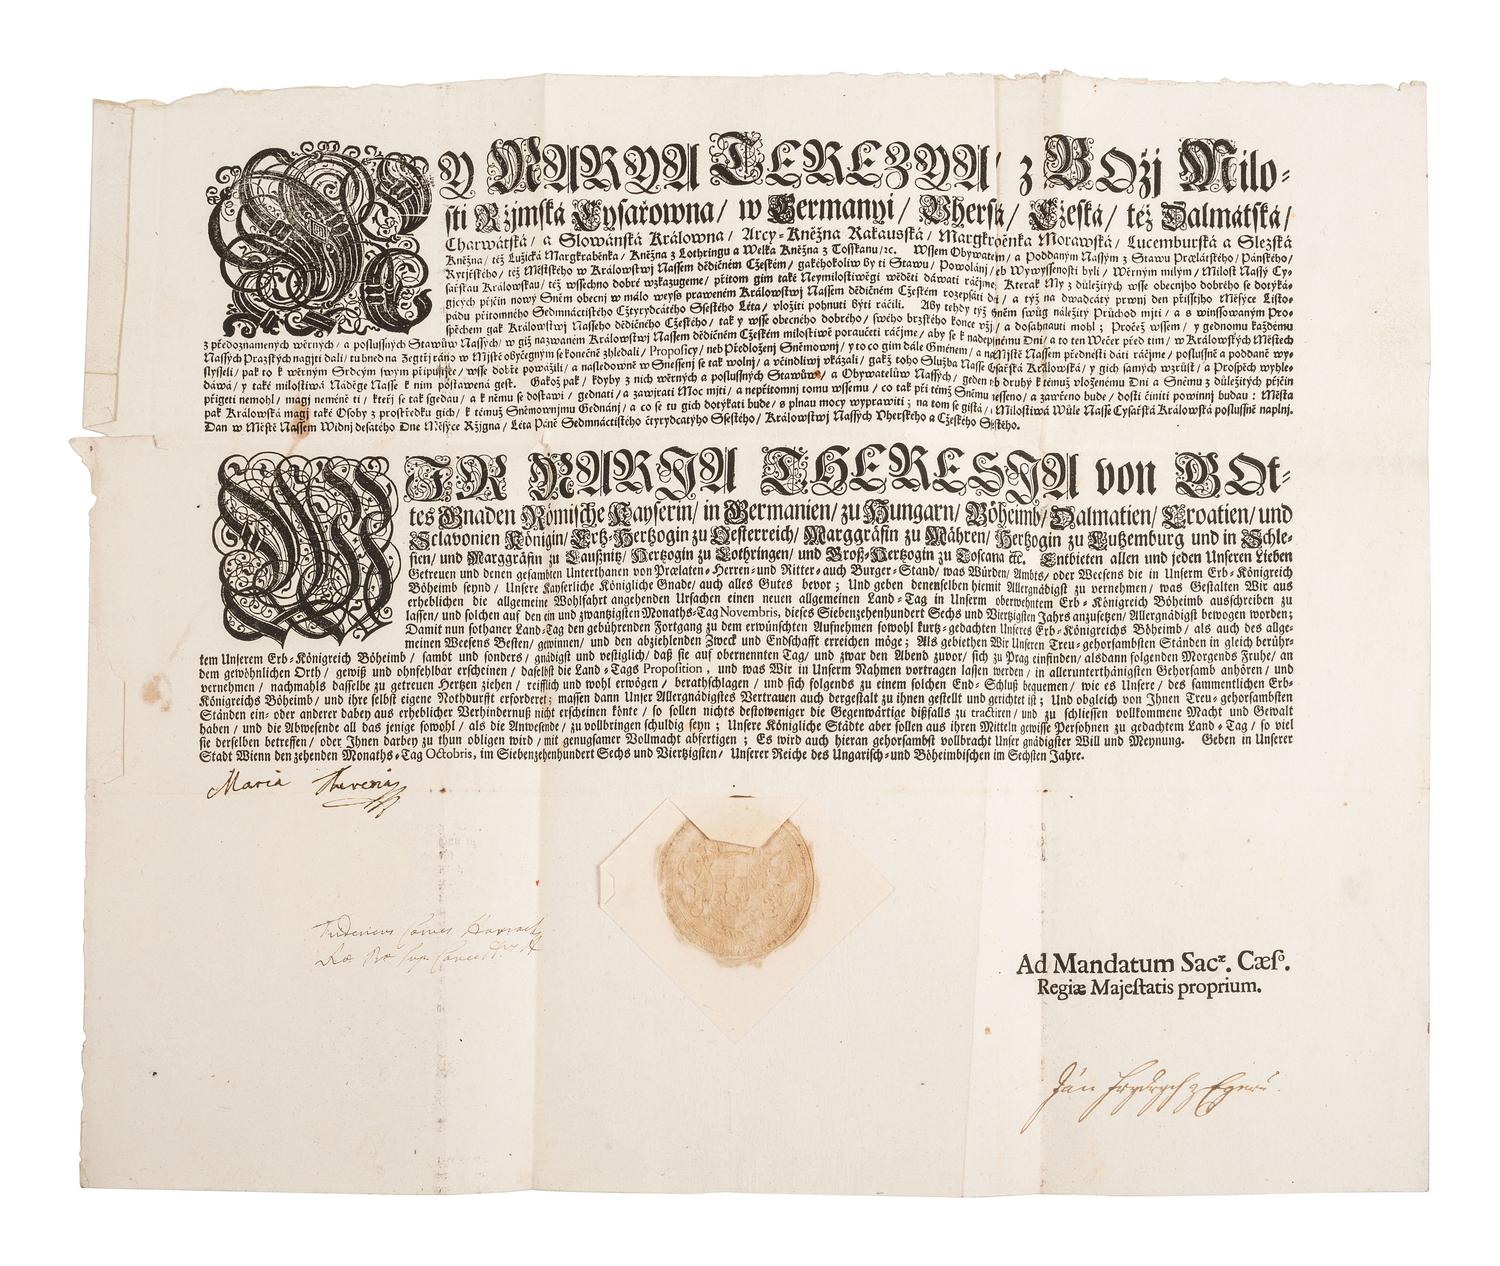 MY MARYA TEREZYA / z BOżj Milo⸗
sti Ržimská Cysařowna / w Germanyi / Vherská / Cžeská / též Dalmátská /
Charwátská / a Slowánská Králowna / Arcy⸗Kněžna Rakauská / Margkraběnka Morawská / Lucemburská a Slezská
Kněžna / též Lužická Margkraběnka / Kněžna z Lothringu a Welká Kněžna z Tosskanu / ꝛc. Wssem Obywatelům / a Poddaným Nassým z Stawu Prælátského / Pánského /
Rytjřského / též Městského w Králowstwj Nassem dědičném Cžeském / gakéhokoliw by ti Stawu / Powolánj / neb Wywyssenosti byli / Wěrným milým / Milost Nassý Cy⸗
sařskau Králowskau / též wssechno dobré wzkazugeme / přitom gim také Neymilostiwěgi wěděti dáwati ráčjme / Kterak My z důležitých wsse obecnjho dobrého se dotýká⸗
gjcých přjčin nowý Sněm obecnj w málo weyss praweném Králowstwj Nassem dědičném Cžeském rozepsati dáti / a týž na dwadcátý prwnj den přisstjho Měsýce Listo⸗
pádu přitomného Sedmnáctistého Cžtyrydcátého Ssestého Léta / vložiti pohnuti býti ráčili. Aby tehdy týž Sněm swůg náležitý Průchod mjti / a s winssowaným Pro⸗
spěchem gak Králowstwj Nasseho dědičného Cžeského / tak y wsse obecného dobrého / swého brzského konce vžjti / a dosáhnauti mohl ; Pročež wssem / y gednomu každému
z předoznamených wěrných / a poslussných Stawůw Nassých / w giž nazwaném Králowstwj Nassem dědičném Cžeském milostiwě poraučeti ráčjme / aby se k nadepsanému Dni / a to ten Wečer před tim / w Králowských Městech
Nassých Pražských nagjti dali / tu hned na Zegtřj ráno w Mjstě obyčegným se konečně zhledali / Proposicy / neb Předloženj Sněmownj / y to co gim dále Gménem / a na Mjstě Nassem přednésti dáti ráčjme / poslussně a poddaně wy⸗
slysseli / pak to k wěrným Srdcým swým připustjce / wsse dobře powážili / a následowně w Snessenj se tak wolnj / a včindliwj vkázali / gakž toho Služba Nasse Cysařská Králowská / y gich samých wzrůst / a Prospěch wyhle⸗
dáwá / y také milostiwá Náděge Nasse k nim postawená gest. Gakož pak / kdyby z nich wěrných a poslussných Stawůw / a Obywatelůw Nassých / geden neb druhý k témuž vloženému Dni a Sněmu z důležitých přjčin
přigeti nemohl / magj neméně ti / kteřj se tak sgedau / a k němu se dostawj / gednati / a zawjrati Moc mjti / a nepřjtomnj tomu wssemu / co tak při témž Sněmu snesseno / a zawřeno bude / dosti činiti powinnj budau : Města
pak Králowská magj také Osoby z prostředku gich / k témuž Sněmownjmu Gednánj / a co se tu gich dotýkati bude / s plnau mocy wyprawiti ; na tom se gistá / a Milostiwá Wůle Nasse Cysařská Králowská poslussně naplnj.
Dán w Městě Nassem Widnj desátého Dne Měsýce Ržjgna / Léta Páně Sedmnáctistého čtyrydcatýho Ssestého / Králowstwj Nassých Vherského a Cžeského Ssestého.
WIR MARJA THERESJA von GOt⸗
tes Gnaden Römische Kayserin / in Germanien / zu Hungarn / Böheimb / Dalmatien / Croatien / und
Sclavonien Königin / Ertz⸗Hertzogin zu Oesterreich / Marggräfin zu Mähren / Hertzogin zu Lutzemburg und in Schle⸗
sien / und Marggräfin zu Laußnitz / Hertzogin zu Lothringen / und Groß⸗Hertzogin zu Toscana ꝛc. Entbieten allen und jeden Unseren Lieben
Getreuen und denen gesambten Unterthanen von Prælaten⸗Herren⸗und Ritter⸗auch Burger⸗Stand / was Würden / Ambts / oder Weesens die in Unserm Erb⸗Königreich
Böheimb seynd / Unsere Kayserliche Königliche Gnade / auch alles Gutes bevor ; Und geben denenselben hiemit Allergnädigst zu vernehmen / was Gestalten Wir aus
erheblichen die allgemeine Wohlfahrt angehenden Ursachen einen neuen allgemeinen Land⸗Tag in Unserm oberwehntem Erb⸗Königreich Böheimb ausschreiben zu
lassen / und solchen auf den ein und zwantzigsten Monaths⸗Tag Novembris, dieses Siebenzehenhundert Sechs und Viertzigsten Jahrs anzusetzen / Allergnädigst bewogen worden ;
Damit nun sothaner Land⸗Tag den gebührenden Fortgang zu dem erwünschten Aufnehmen sowohl kurtz⸗gedachten Unseres Erb⸗Königreichs Böheimb / als auch des allge⸗
meinen Weesens Besten / gewinnen / und den abziehlenden Zweck und Endschafft erreichen möge ; Als gebiethen Wir Unseren Treu⸗gehorsambsten Ständen in gleich berühr⸗
tem Unserem Erb⸗Königreich Böheimb / sambt und sonders / gnädigst und vestiglich / daß sie auf obernennten Tag / und zwar den Abend zuvor / sich zu Prag einfinden / alsdann folgenden Morgends Fruhe / an
dem gewöhnlichen Orth / gewiß und ohnfehlbar erscheinen / daselbst die Land⸗Tags Proposition, und was Wir in Unserm Nahmen vortragen lassen werden / in allerunterthänigsten Gehorsamb anhören / und
vernehmen / nachmahls dasselbe zu getreuen Hertzen ziehen / reifflich und wohl erwögen / berathschlagen / und sich folgends zu einem solchen End⸗Schluß bequemen / wie es Unsere / des sammentlichen Erb⸗
Königreichs Böheimb / und ihre selbst eigene Nothdurfft erforderet ; massen dann Unser Allergnädigstes Vertrauen auch dergestalt zu ihnen gestellt und gerichtet ist ; Und obgleich von Ihnen Treu⸗gehorsambsten
Ständen ein⸗oder anderer dabey aus erheblicher Verhindernuß nicht erscheinen könte / so sollen nichts destoweniger die Gegenwärtige dißfalls zu tractiren / und zu schliessen vollkommene Macht und Gewalt
haben / und die Abwesende all das jenige sowohl / als die Anwesende / zu vollbringen schuldig seyn ; Unsere Königliche Städte aber sollen aus ihren Mitteln gewisse Persohnen zu gedachtem Land⸗Tag / so viel
sie derselben betreffen / oder Ihnen darbey zu thun obligen wird / mit genugsamer Vollmacht abfertigen ; Es wird auch hieran gehorsambst vollbracht Unser gnädigster Will und Meynung. Geben in Unserer
Stadt Wienn den zehenden Monaths⸗Tag Octobris, im Siebenzehenhundert Sechs und Viertzigsten / Unserer Reiche des Ungarisch⸗und Böheimbischen im Sechsten Jahre.
Maria Theresia
Fridericus Comes Harrach
Ad Mandatum Sacæ. Cæsᵒ.
Regiæ Majestatis proprium.
Ján Frydrych z Egerů